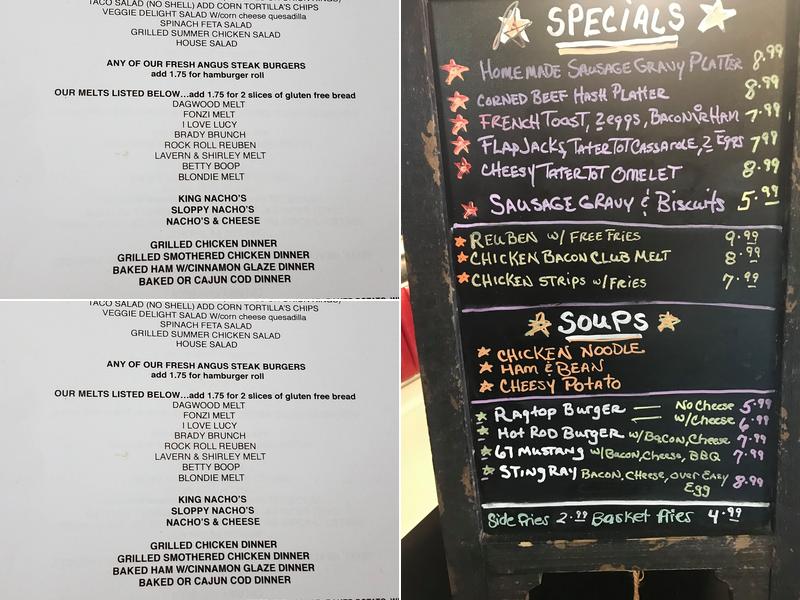 TACO SALAD (NO SHELL) ADD CORN TORTILLA'S CHIPS
VEGGIE DELIGHT SALAD W/corn cheese quesadilla
SPINACH FETA SALAD
GRILLED SUMMER CHICKEN SALAD
HOUSE SALAD
ANY OF OUR FRESH ANGUS STEAK BURGERS
add 1.75 for hamburger roll
OUR MELTS LISTED BELOW...add 1.75 for 2 slices of gluten free bread
DAGWOOD MELT
FONZI MELT
I LOVE LUCY
BRADY BRUNCH
ROCK ROLL REUBEN
LAVERN & SHIRLEY MELT
BETTY BOOP
BLONDIE MELT
KING NACHO'S
SLOPPY NACHO'S
NACHO'S & CHEESE
GRILLED CHICKEN DINNER
GRILLED SMOTHERED CHICKEN DINNER
BAKED HAM W/CINNAMON GLAZE DINNER
BAKED OR CAJUN COD DINNER
TACO SALAD (NO SHELL) ADD CORN TORTILLA'S CHIPS
VEGGIE DELIGHT SALAD W/corn cheese quesadilla
SPINACH FETA SALAD
GRILLED SUMMER CHICKEN SALAD
HOUSE SALAD
ANY OF OUR FRESH ANGUS STEAK BURGERS
add 1.75 for hamburger roll
OUR MELTS LISTED BELOW...add 1.75 for 2 slices of gluten free bread
DAGWOOD MELT
FONZI MELT
I LOVE LUCY
BRADY BRUNCH
ROCK ROLL REUBEN
LAVERN & SHIRLEY MELT
BETTY BOOP
BLONDIE MELT
KING NACHO'S
SLOPPY NACHO'S
NACHO'S & CHEESE
GRILLED CHICKEN DINNER
GRILLED SMOTHERED CHICKEN DINNER
BAKED HAM W/CINNAMON GLAZE DINNER
BAKED OR CAJUN COD DINNER
SPECIALS
HOMEMADE SAUSAGE GRAVY PLATTER 8.99
CORNED BEEF HASH PLATTER 8.99
FRENCH TOAST, 2 eggs, BACON OR HAM 7.99
FLAPJACKS, TATERTOT CASSAROLE, 2 EGGS 7.99
CHEESY TATERTOT OMELET 8.99
SAUSAGE GRAVY & BISCUITS 5.99
REUBEN W/ FREE FRIES 9.99
CHICKEN BACON CLUB MELT 8.99
CHICKEN STRIPS W/FRIES 7.99
SOUPS
CHICKEN NOODLE
HAM & BEAN
CHEESY POTATO
RAGTOP BURGER No Cheese 5.99
w/Cheese 6.99
HOT ROD BURGER W/BACON, Cheese 7.99
67 MUSTANG W/BACON, Cheese, BBQ 7.99
STINGRAY BACON, CHEESE, OVER EASY
Egg 8.99
Side Fries 2.99 Basket Fries 4.99